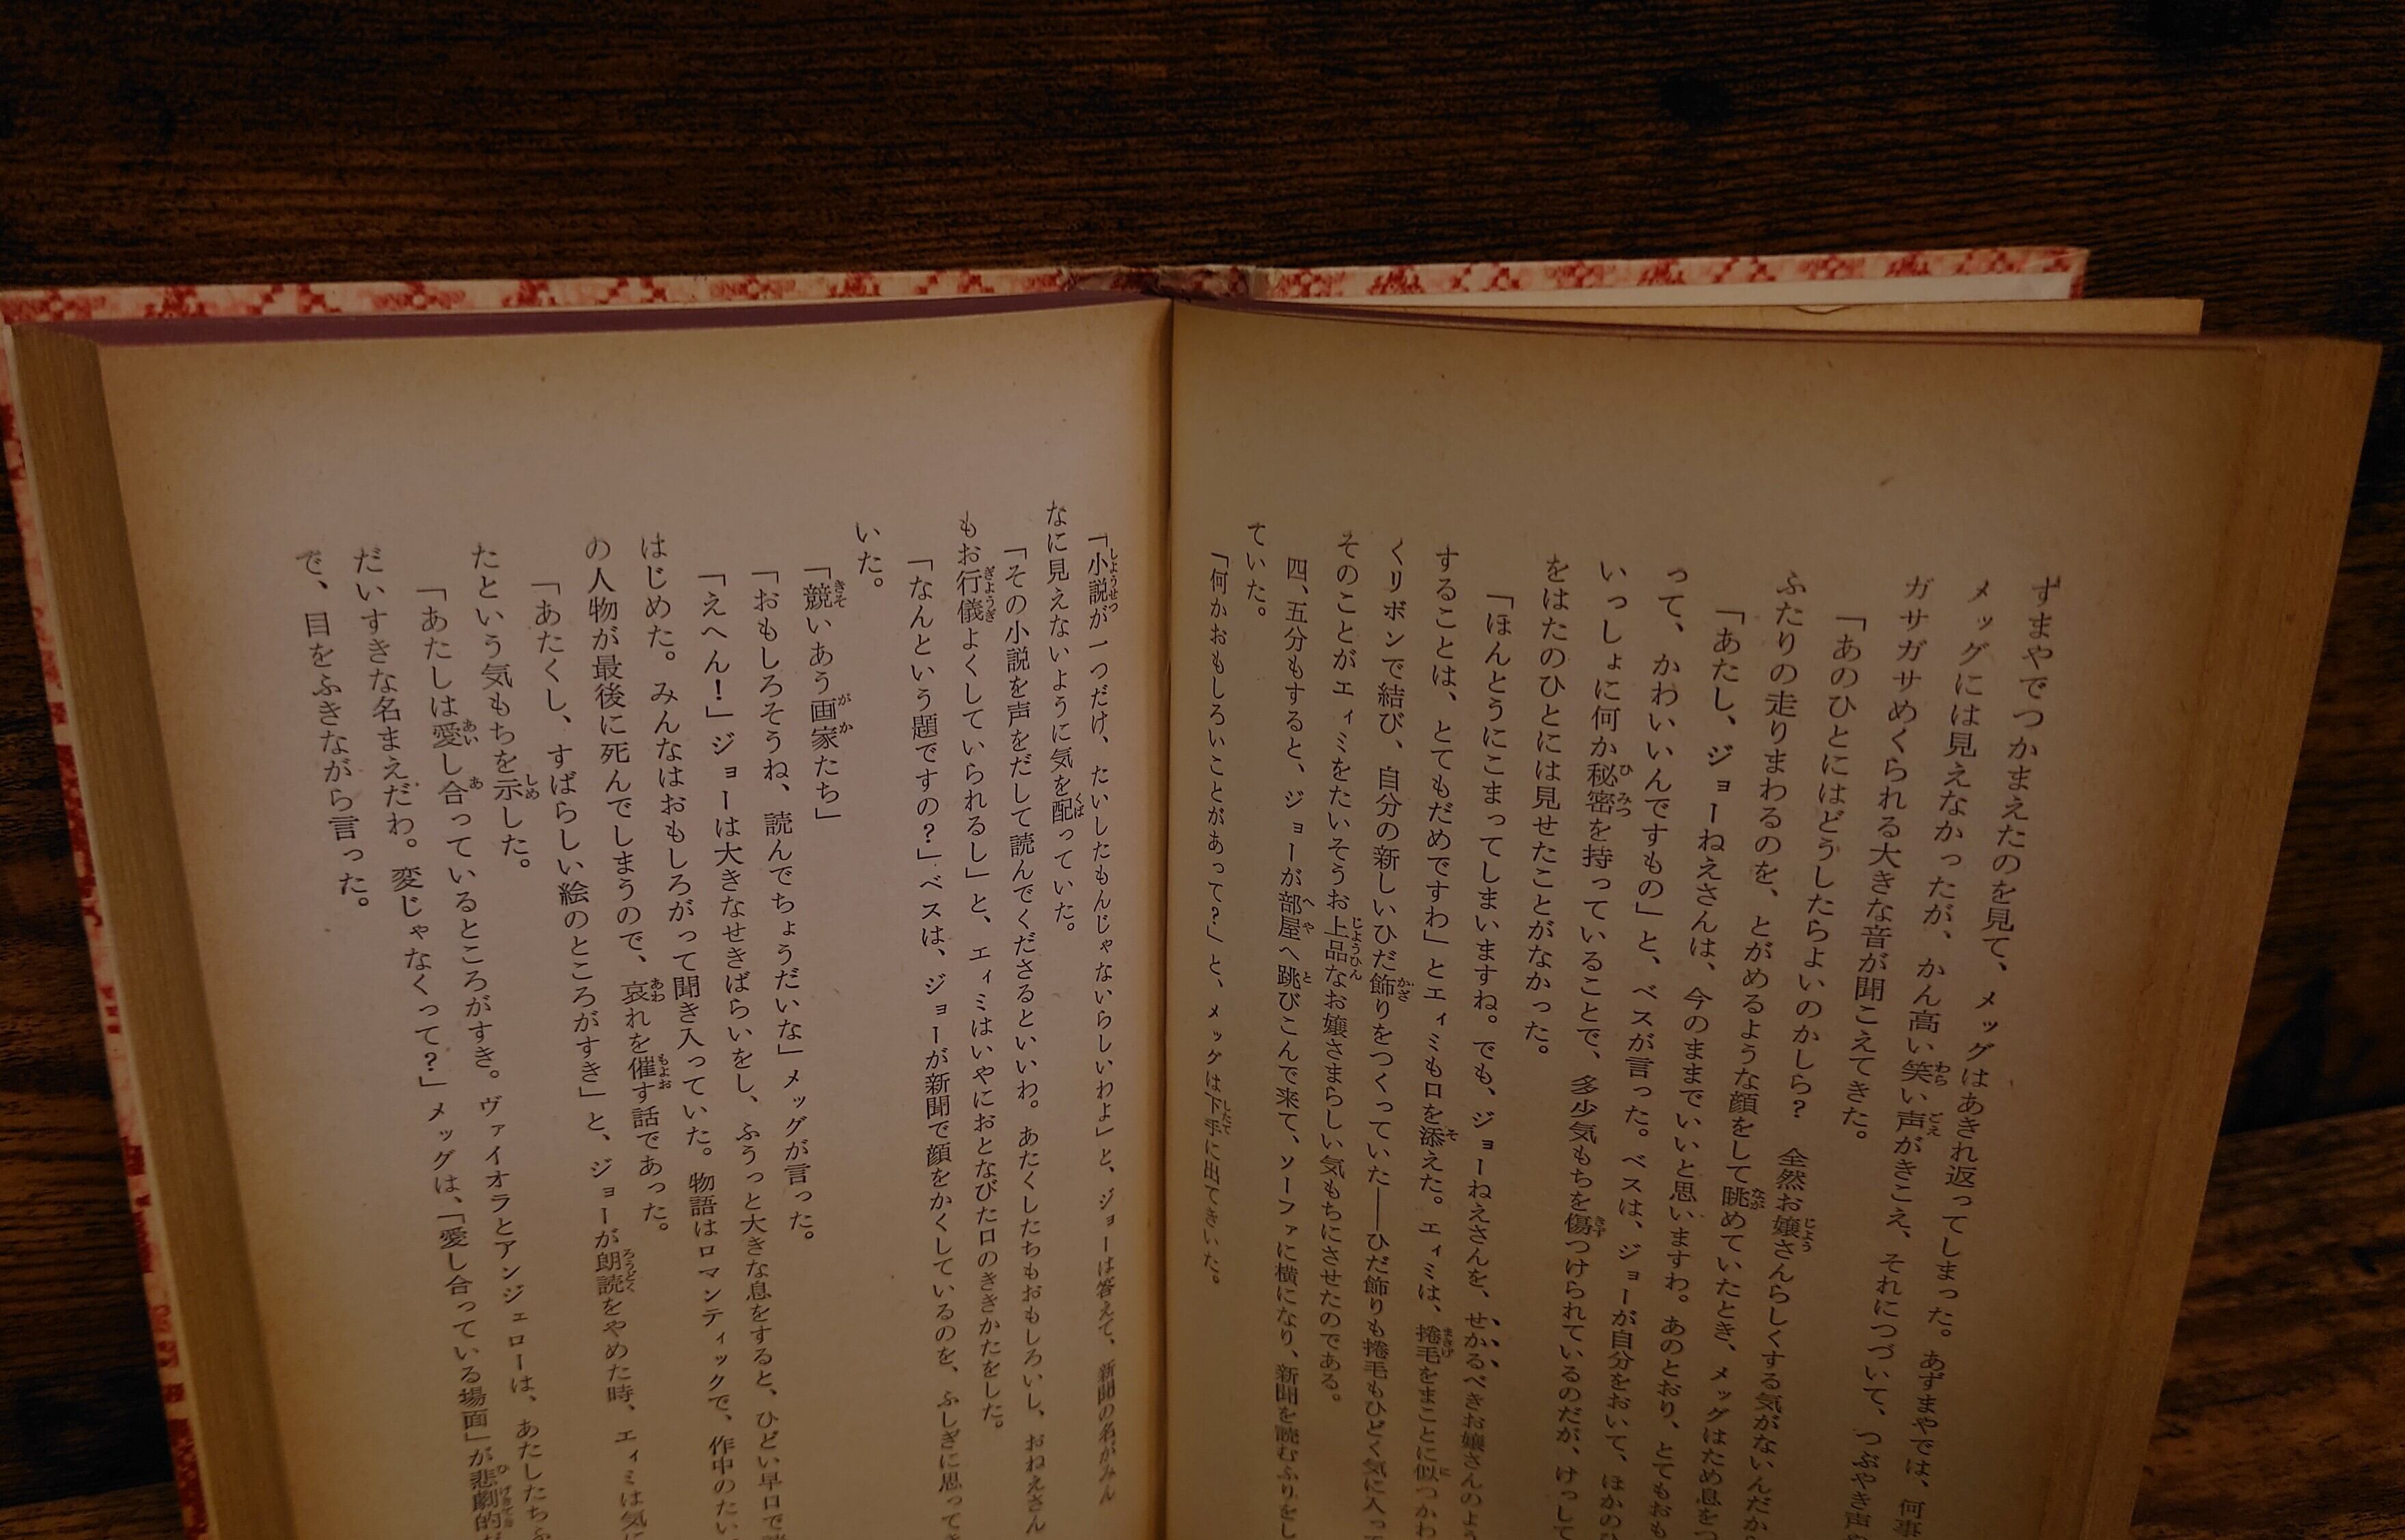 ずまやでつかまえたのを見て、メッグはあきれ返ってしまった。あずまやでは、何事
メッグには見えなかったが、かん高い笑い声がきこえ、それにつづいて、つぶやき声や
ガサガサめくられる大きな音が聞こえてきた。
「あのひとにはどうしたらよいのかしら？　全然お嬢さんらしくする気がないんだから
ふたりの走りまわるのを、とがめるような顔をして眺めていたとき、メッグはため息をつ
「あたし、ジョーねえさんは、今のままでいいと思いますわ。あのとおり、とてもおも
って、かわいいんですもの」と、ベスが言った。ベスは、ジョーが自分をおいて、ほかの
いっしょに何か秘密を持っていることで、多少気もちを傷つけられているのだが、けっして
をはたのひとには見せたことがなかった。
「ほんとうにこまってしまいますね。でも、ジョーねえさんを、せかるべきお嬢さんのよう
することは、とてもだめですわ」とエィミも口を添えた。エィミは、捲毛をまことに似つかわ
くリボンで結び、自分の新しいひだ飾りをつくっていた――ひだ飾りも捲毛もひどく気に入っ
そのことがエィミをたいそうお上品なお嬢さまらしい気もちにさせたのである。
四、五分もすると、ジョーが部屋へ跳びこんで来て、ソーファに横になり、新聞を読むふりをし
ていた。
「何かおもしろいことがあって？」と、メッグは下手に出てきいた。
「小説が一つだけ、たいしたもんじゃないらしいわよ」と、ジョーは答えて、新聞の名がみん
なに見えないように気を配っていた。
「その小説を声をだして読んでくださるといいわ。あたくしたちもおもしろいし、おねえさん
もお行儀よくしていられるし」と、エィミはいやにおとなびた口のききかたをした。
「なんという題ですの？」ベスは、ジョーが新聞で顔をかくしているのを、ふしぎに思ってき
いた。
「競いあう画家たち」
「おもしろそうね、読んでちょうだいな」メッグが言った。
「えへん！」ジョーは大きなせきばらいをし、ふうっと大きな息をすると、ひどい早口で
はじめた。みんなはおもしろがって聞き入っていた。物語はロマンティックで、作中のたい
の人物が最後に死んでしまうので、哀れを催す話であった。
「あたくし、すばらしい絵のところがすき」と、ジョーが朗読をやめた時、エィミは気に
たという気もちを示した。
「あたしは愛し合っているところがすき。ヴァイオラとアンジェローは、あたしたちふ
だいすきな名まえだわ。変じゃなくって？」メッグは、「愛し合っている場面」が悲劇的
で、目をふきながら言った。